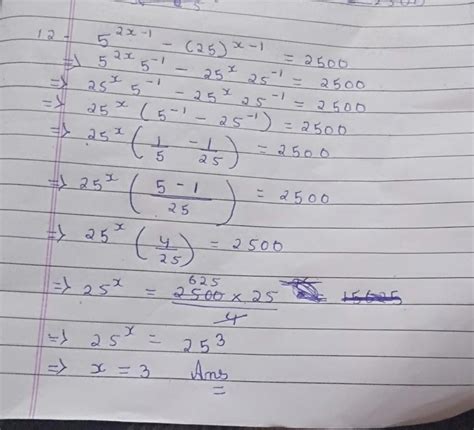 12. 5^(2x-1) - (25)^(x-1) = 2500
=> 5^(2x) 5^(-1) - 25^x 25^(-1) = 2500
=> 25^x 5^(-1) - 25^x 25^(-1) = 2500
=> 25^x (5^(-1) - 25^(-1)) = 2500
=> 25^x (1/5 - 1/25) = 2500
=> 25^x ((5 - 1)/25) = 2500
=> 25^x (4/25) = 2500
625
=> 25^x = (2500 × 25)/4 15625
=> 25^x = 25^3
=> x = 3 Ans